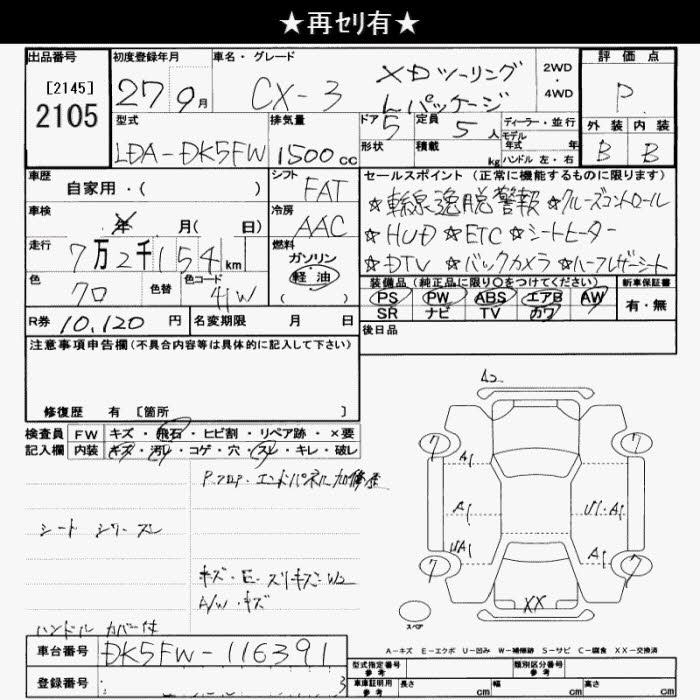 ★再セリ有★
出品番号 初度登録年月 車名・グレード 評価点
[2145]
2105
27 9月 CX-3 XDツーリング Lパッケージ 2WD・4WD P
型式 排気量 ドア 5 定員 5人 ディーラー・並行 外装 内装
LDA-DK5FW 1500cc 形状 積載 kg モデル年式 年 B B
ハンドル 左・右
車歴 シフト セールスポイント (正常に機能するものに限ります)
自家用・( ) FAT ☆車線逸脱警報 ☆クルーズコントロール
車検 年 月( 日) 冷房 AAC ☆HUD ☆ETC ☆シートヒーター
走行 7万2千154km 燃料 ガソリン 軽油 ( ) ☆DTV ☆バックカメラ ☆ハーフレザーシート
色 クロ 色替 色コード 41W 装備品 (純正品に限り○をつけてください) 新車保証書
PS PW ABS エアB AW 有・無
SR ナビ TV カワ
R券 10,120円 名変期限 月 日 後日品
注意事項申告欄 (不具合内容等は具体的に記入して下さい)
修復歴 有 [箇所 ]
検査員 FW キズ・飛石・ヒビ割・リペア跡・×要
記入欄 内装 キズ・汚レ・コゲ・穴・スレ・キレ・破レ
A2
P.フロア・エンドパネル加修歴
シート シワ・スレ
キズ・E・スリキズ・W2
A/W・キズ
ハンドル カバー付
7 7
A1
A1 U1・A1
UA1 A1
7 7
XX
スペア
A-キズ E-エクボ U-凹み W-補修跡 S-サビ C-腐食 XX-交換済
車台番号 DK5FW-116391
登録番号 3
型式指定番号 参考 類別区分番号 参考
車庫証明用 参考 長さ cm 幅 cm 高さ cm